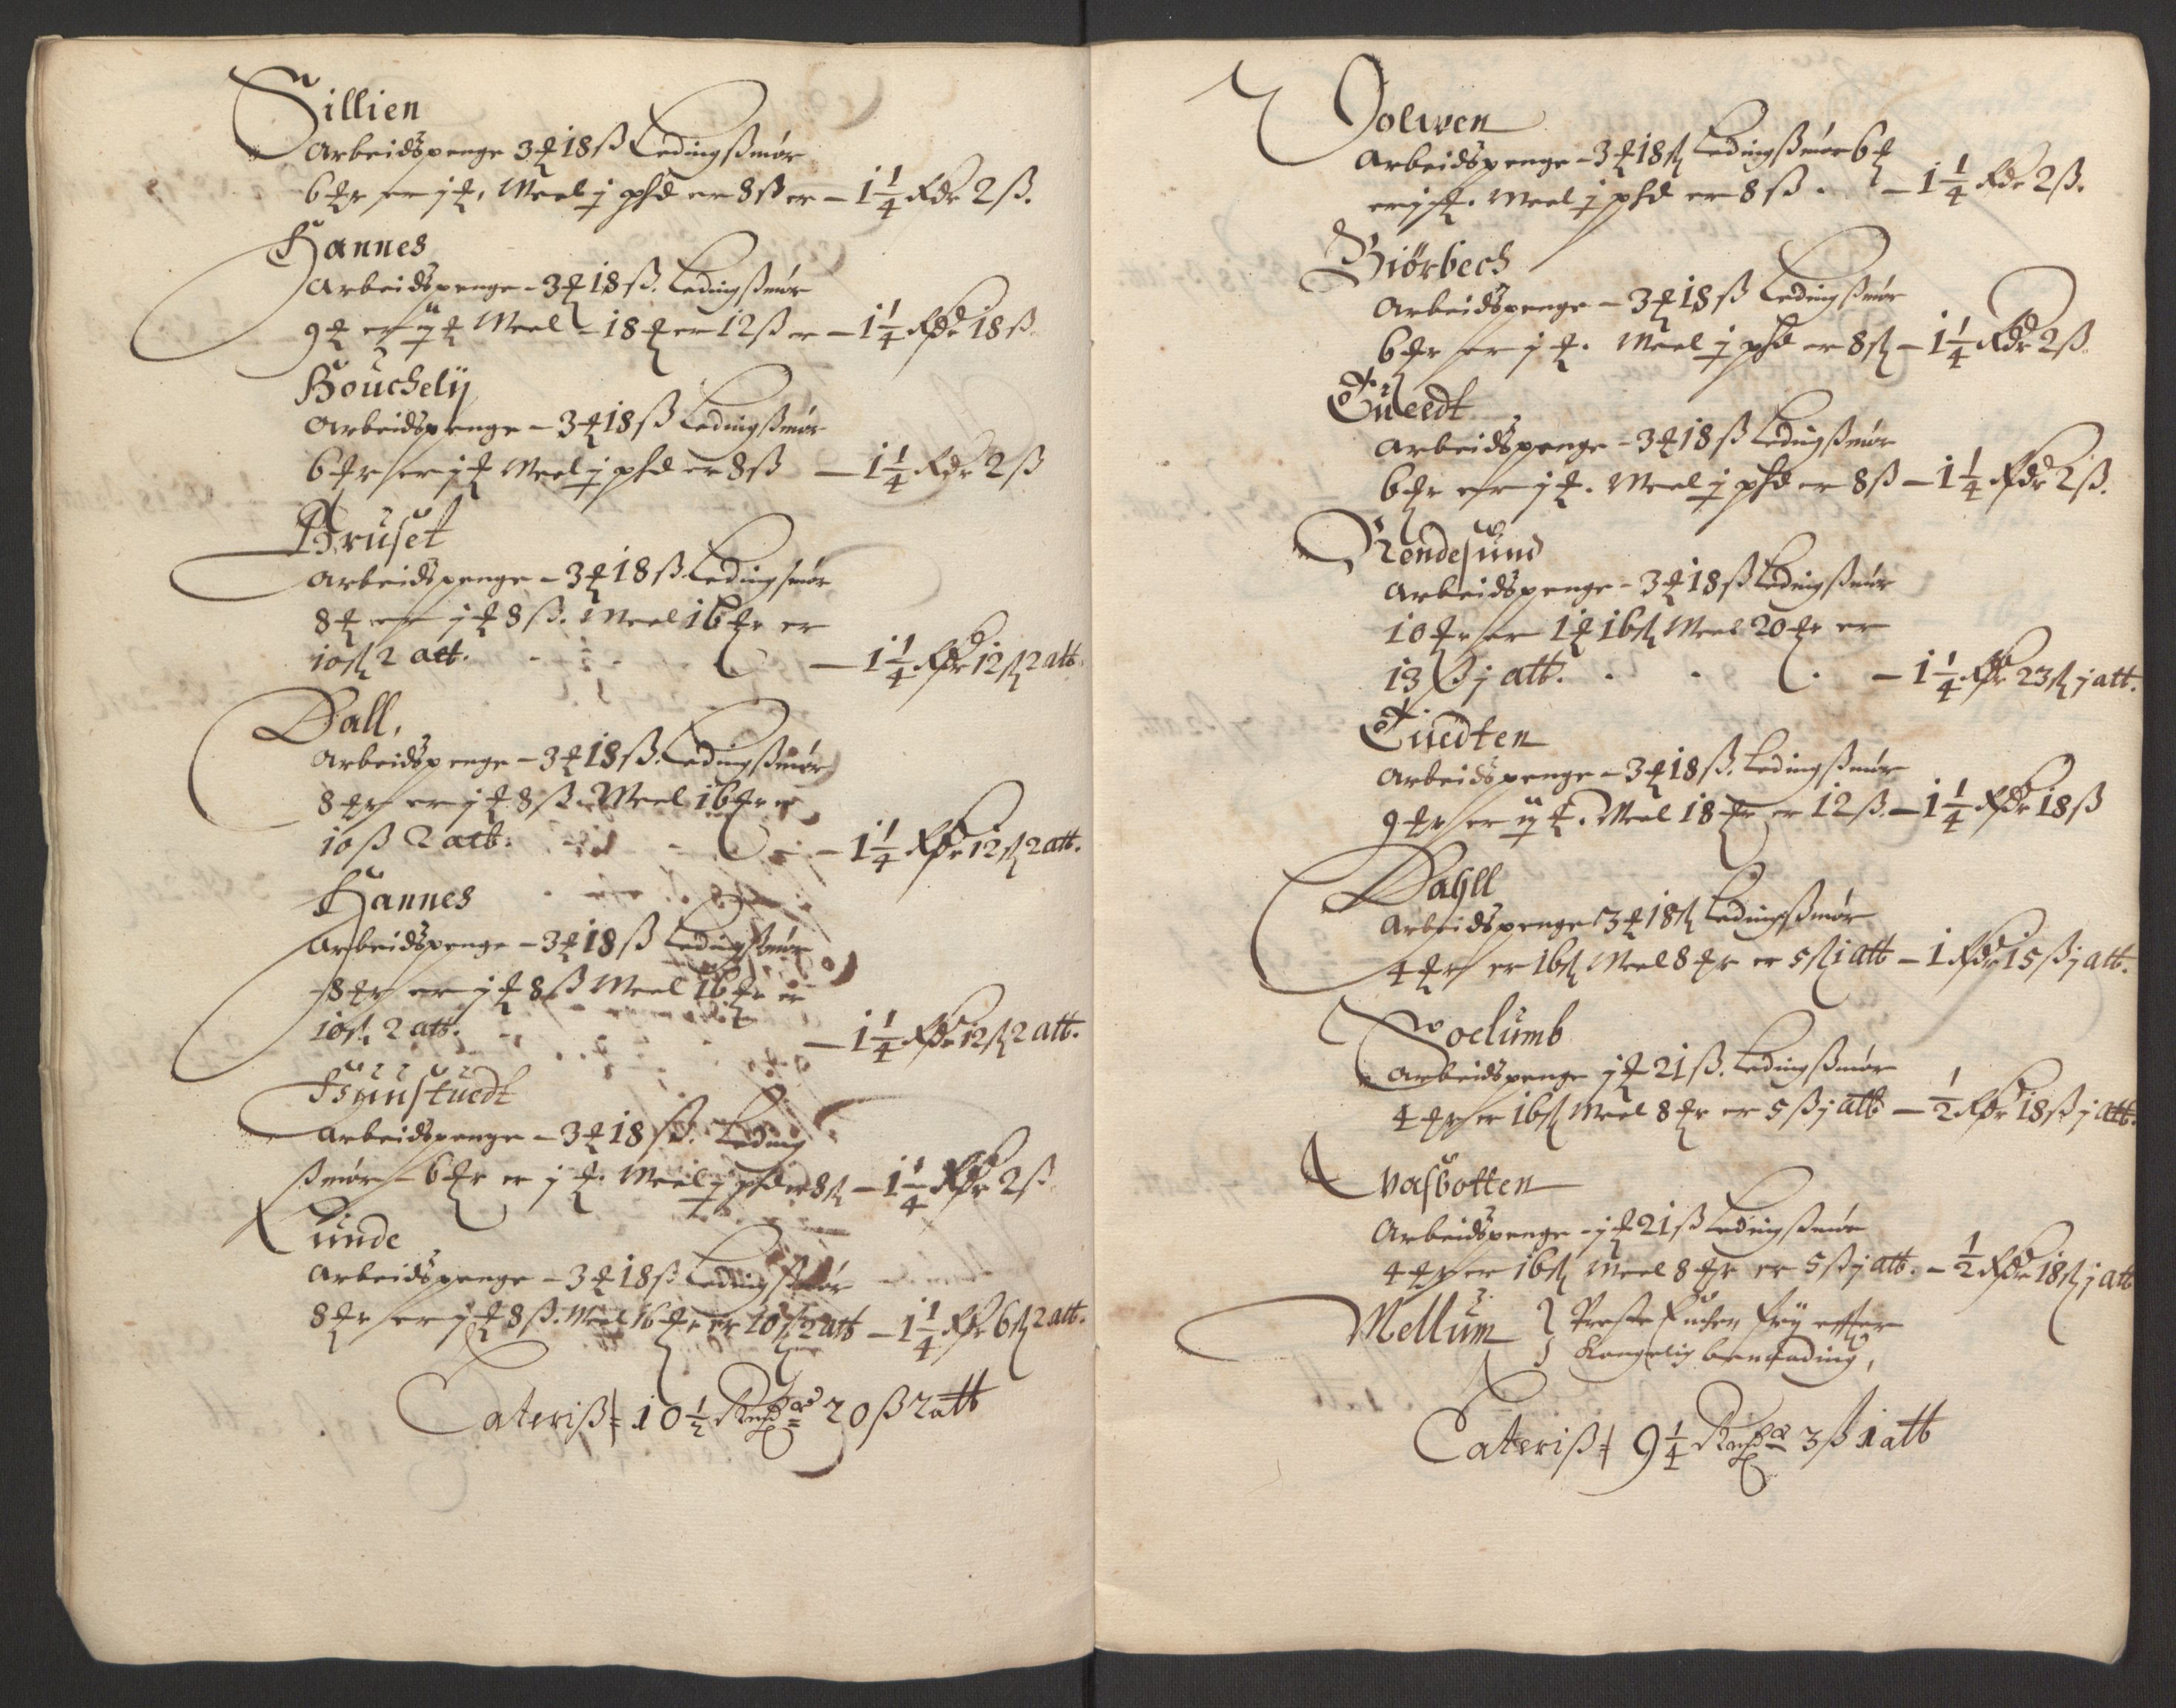 Sillien
Arbeidspenge 3 ₰ 18 ß Ledingsmør
6 ₰r er j ₰. Meel j phd er 8 ß er – 1 1/4 Rdr 2 ß.
Hannes
Arbeidspenge – 3 ₰ 18 ß. Ledingsmør
9 ₰ er ij ₰ Meel – 18 ₰ er 12 ß er – 1 1/4 Rdr 18 ß
Bouchelÿ
Arbeidspenge – 3 ₰ 18 ß Ledingsmør
6 ₰r er j ₰ Meel j phd er 8 ß – 1 1/4 Rdr 2 ß
Bruset
Arbeidspenge – 3 ₰ 18 ß Ledingsmør
8 ₰ er j ₰ 8 ß. Meel 16 ₰r er
10 ß 2 alb. – 1 1/4 Rdr 12 ß 2 alb.
Dall,
Arbeidspenge – 3 ₰ 18 ß. Ledingsmør
8 ₰r er j ₰ 8 ß. Meel 16 ₰r er
10 ß 2 alb. – 1 1/4 Rdr 12 ß 2 alb.
Hannes
Arbeidspenge – 3 ₰ 18 ß Ledingsmør
8 ₰r er j ₰ 8 ß Meel 16 ₰r er
10 ß. 2 alb. – 1 1/4 Rdr 12 ß 2 alb.
Arbeidspenge – 3 ₰ 18 ß. Leding
smør – 6 ₰r er j ₰. Meel j phd er 8 ß – 1 1/4 Rdr 2 ß
Lunde
Arbeidspenge – 3 ₰ 18 ß Ledingsmør
8 ₰r er j ₰ 8 ß. Meel 16 ₰r er 10 ß 2 alb – 1 1/4 Rdr 6 ß 2 alb.
Lateriß 10 1/2 Rixdr 20 ß 2 alb
Jolwen
Arbeidspenge – 3 ₰ 18 ß Ledingsmør 6 ₰
er j ₰. Meel j phd er 8 ß. – 1 1/4 Rdr 2 ß.
Biørbech
Arbeidspenge – 3 ₰ 18 ß Ledingsmør
6 ₰r er j ₰. Meel j phd er 8 ß – 1 1/4 Rdr 2 ß
Tuedt
Arbeidspenge – 3 ₰ 18 ß Ledingsmør
6 ₰r er j ₰. Meel j phd er 8 ß – 1 1/4 Rdr 2 ß.
Rendesund
Arbeidspenge – 3 ₰ 18 ß Ledingsmør
10 ₰r er 1 ₰ 16 ß Meel 20 ₰r er
13 ß j alb. – 1 1/4 Rdr 23 ß j alb.
Tuedten
Arbeidspenge – 3 ₰ 18 ß. Ledingsmør
9 ₰r er ij ₰. Meel 18 ₰r er 12 ß. – 1 1/4 Rdr 18 ß
Dahll
Arbeidspenge 3 ₰ 18 ß Ledingsmør
4 ₰r er 16 ß Meel 8 ₰r er 5 ß j alb – 1 Rdr 15 ß j alb.
Soelumb
Arbeidspenge j ₰ 21 ß. Ledingsmør
4 ₰r er 16 ß Meel 8 ₰r er 5 ß j alb – 1/2 Rdr 18 ß j alb.
Evasbotten
Arbeidspenge – j ₰ 21 ß Ledingsmør
4 ₰r er 16 ß Meel 8 ₰r er 5 ß j alb. – 1/2 Rdr 18 ß j alb
Mellum } Preste Encken frÿ effter
Kongelig benaading,
Lateriß 9 1/4 Rixdr 3 ß 1 alb